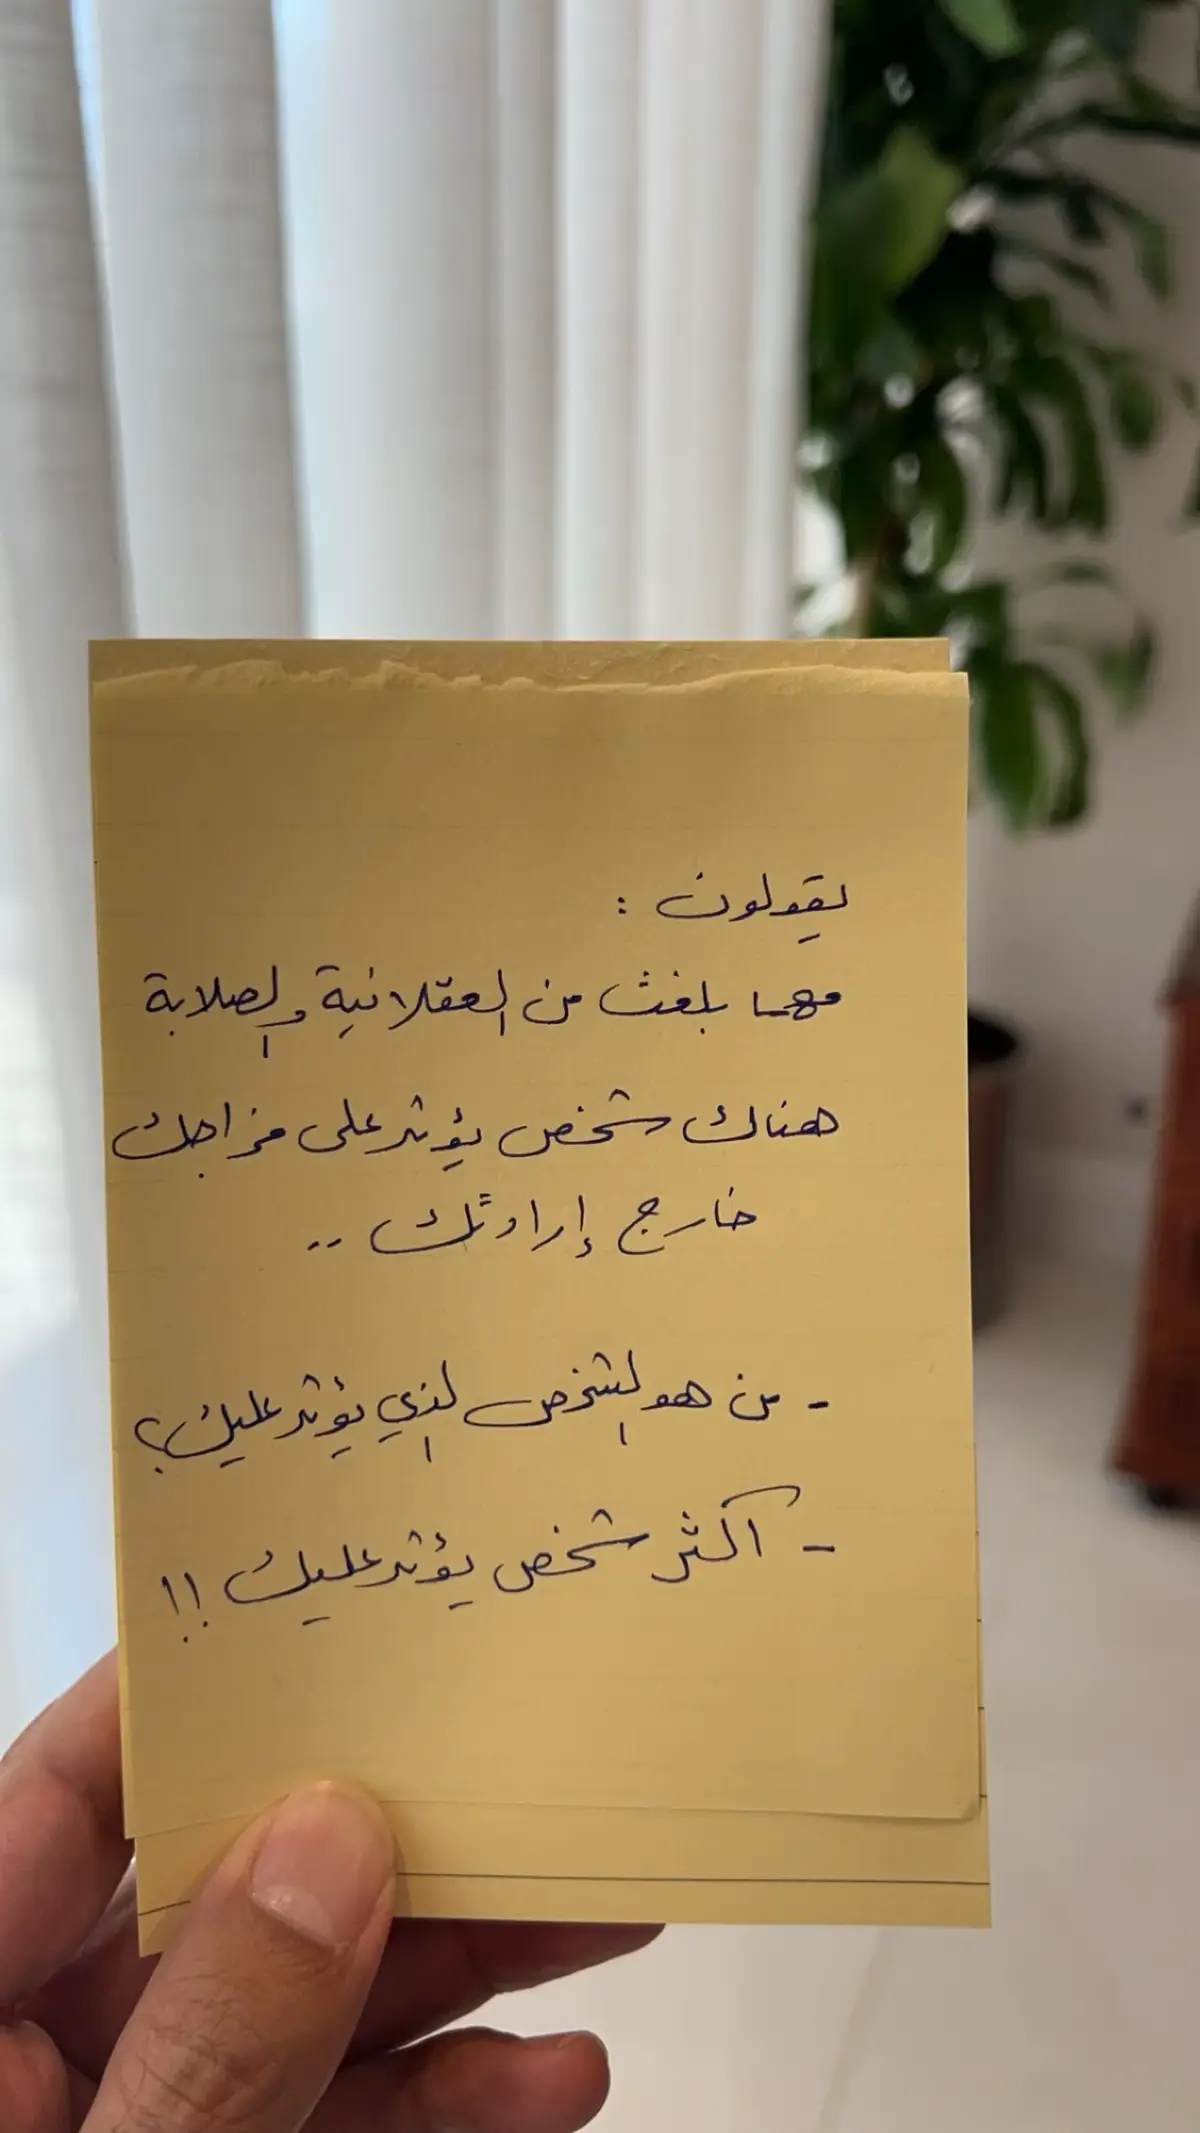 يقولون :
مهما بلغت من العقلانية والصلابة
هناك شخص يؤثر على مزاجك
خارج إرادتك ..
- من هو الشخص الذي يؤثر عليك؟
- أكثر شخص يؤثر عليك !!